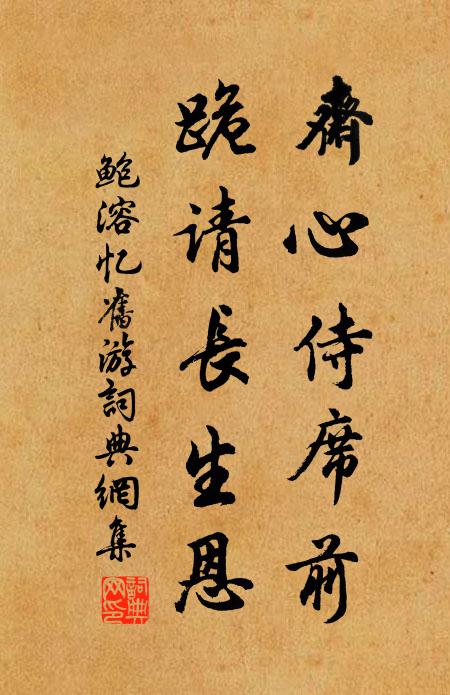 齋心侍席前
跪请長生恩
鲍溶忆舊游詞典網集
詞典网印